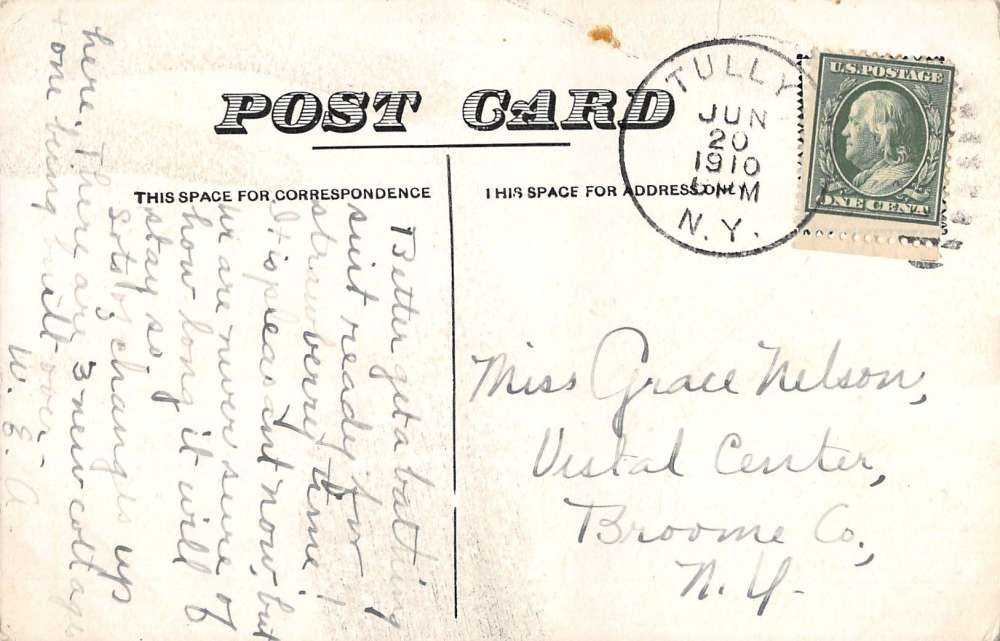 POST CARD
THIS SPACE FOR CORRESPONDENCE
THIS SPACE FOR ADDRESS ONLY
TULLY
JUN
20
1910
PM
N.Y.
U.S. POSTAGE
ONE CENT
Better get a bathing
suit ready for
strawberry time!
It is pleasant now, but
we are never sure of
how long it will
stay so.
Lots of changes up
here. There are 3 new cottages
+ one being built over.
W. E. A.
Miss Grace Nelson,
Vestal Center,
Broome Co.,
N.Y.